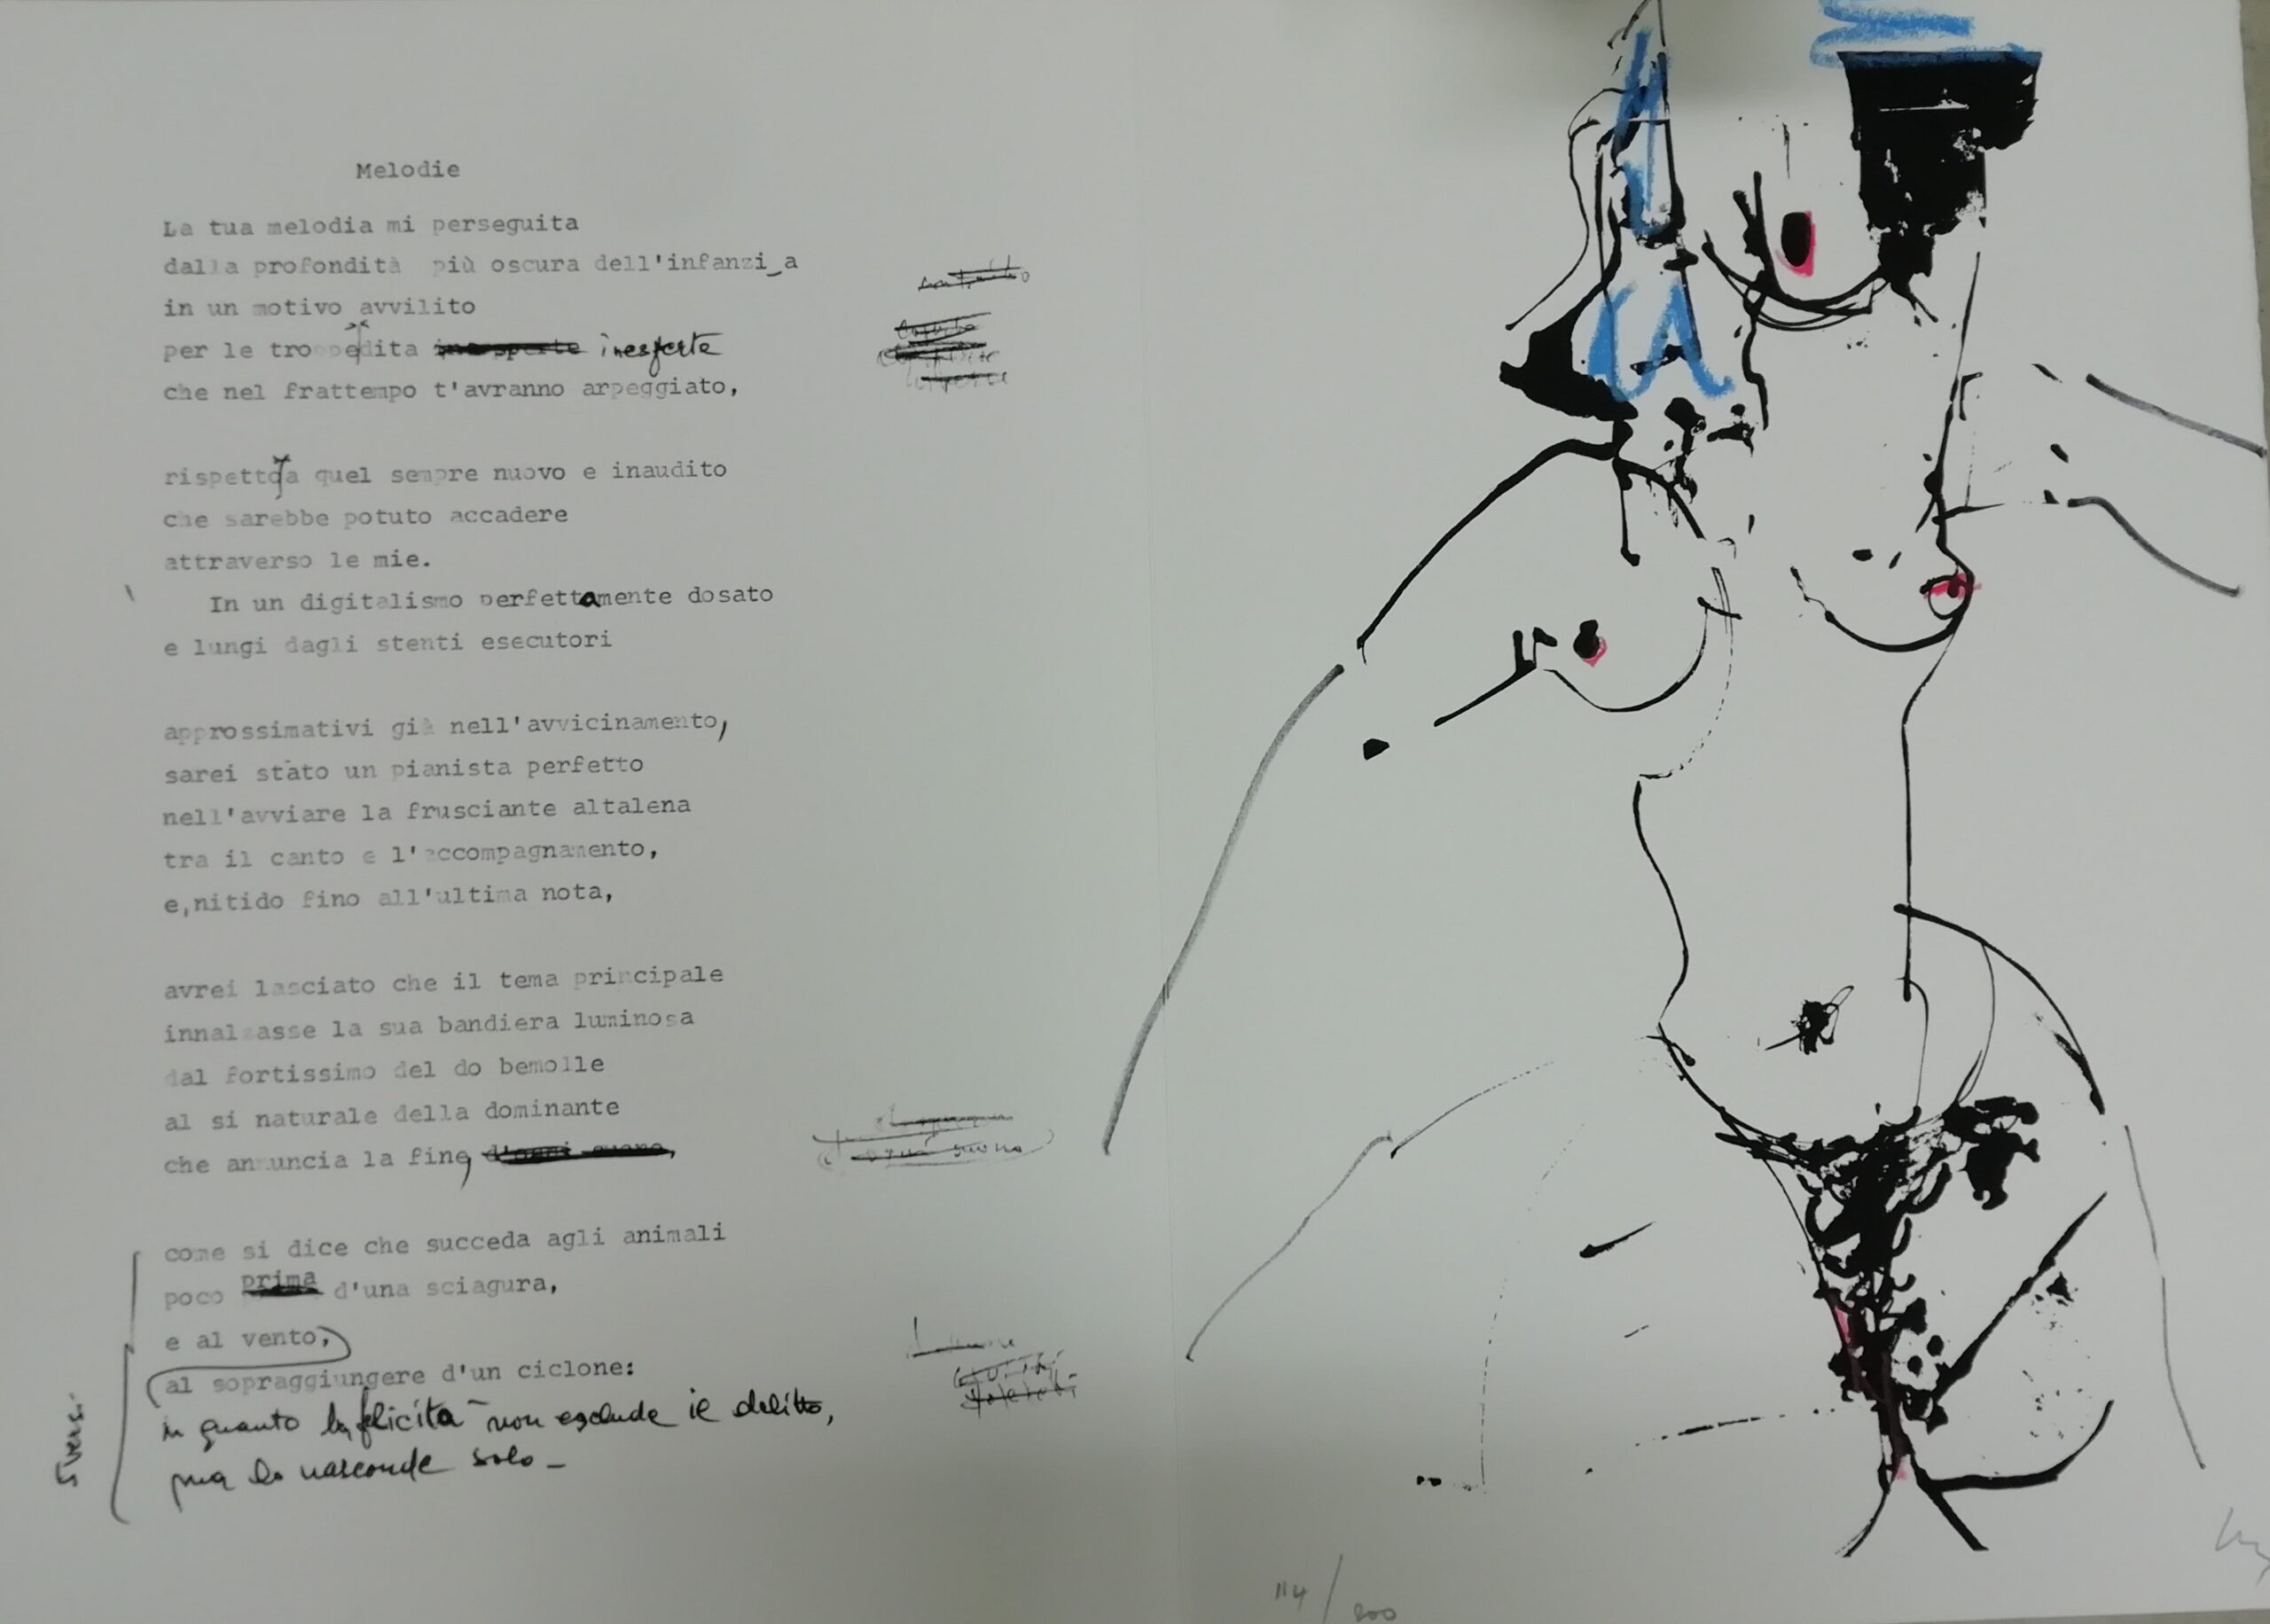 Melodie
La tua melodia mi perseguita
dalla profondità più oscura dell'infanzi_a
in un motivo avvilito
per le troppe dita inesperte
che nel frattempo t'avranno arpeggiato,
rispetto a quel sempre nuovo e inaudito
che sarebbe potuto accadere
attraverso le mie.
In un digitalismo perfettamente dosato
e lungi dagli stenti esecutori
approssimativi già nell'avvicinamento,
sarei stato un pianista perfetto
nell'avviare la frusciante altalena
tra il canto e l'accompagnamento,
e,nitido fino all'ultima nota,
avrei lasciato che il tema principale
innalzasse la sua bandiera luminosa
dal fortissimo del do bemolle
al si naturale della dominante
che annuncia la fine, d'ogni suono,
d'ogni suono
come si dice che succeda agli animali
poco prima d'una sciagura,
e al vento,
al sopraggiungere d'un ciclone:
in quanto la felicità non esclude il delitto,
ma lo nasconde solo –
5 versi
114/200